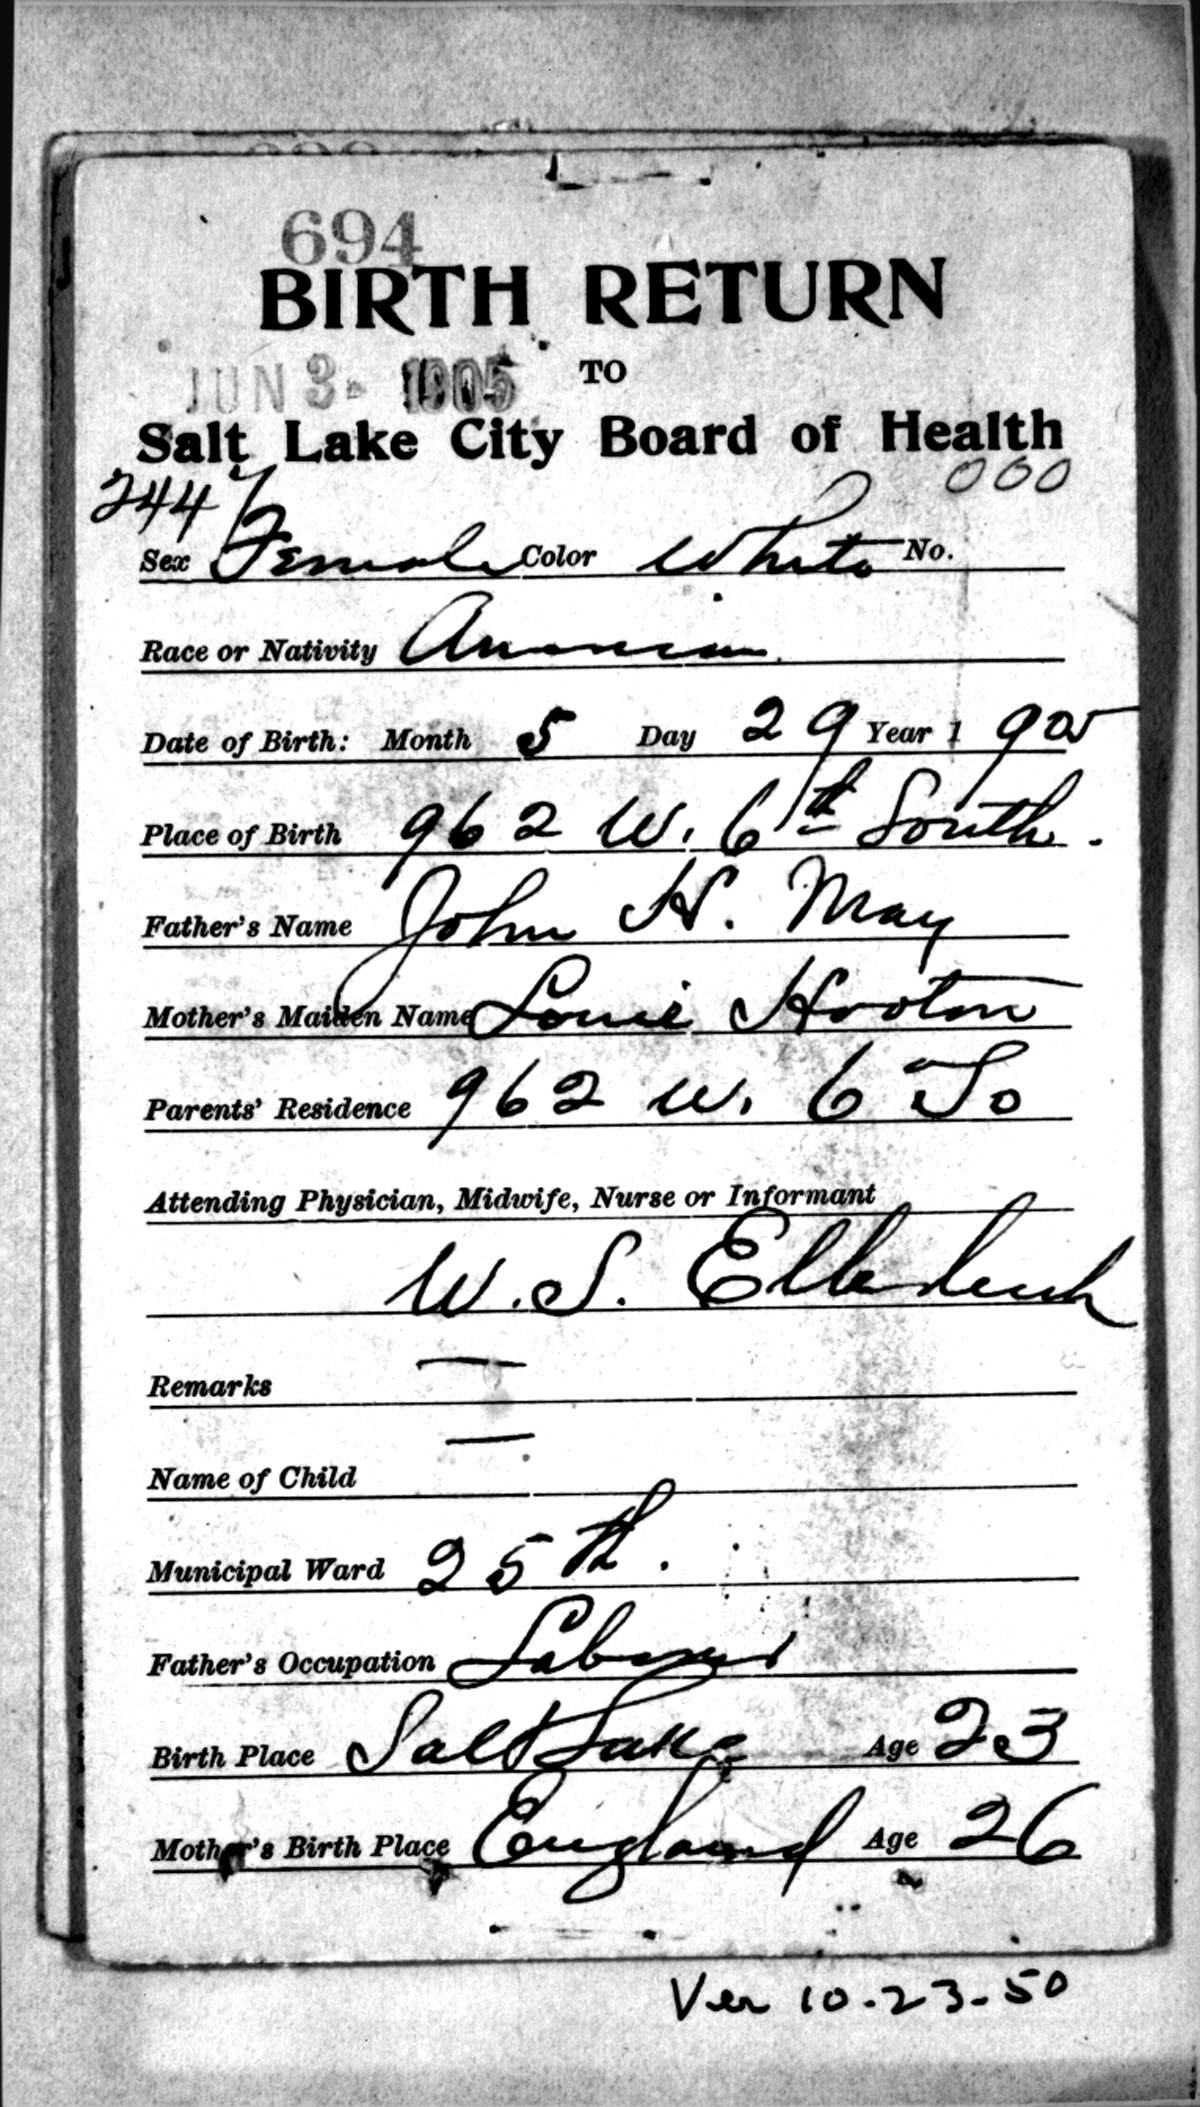 694
BIRTH RETURN
JUN 3- 1905 TO
Salt Lake City Board of Health
2447 000
Sex Female Color White No.
Race or Nativity American
Date of Birth: Month 5 Day 29 Year 1 905
Place of Birth 962 W. 6th South.
Father's Name John H. May
Mother's Maiden Name Louie Hooton
Parents' Residence 962 W. 6 So
Attending Physician, Midwife, Nurse or Informant
W. S.
Remarks —
Name of Child —
Municipal Ward 25th.
Father's Occupation Laborer
Birth Place Salt Lake Age 23
Mother's Birth Place England Age 26
Ver 10-23-50